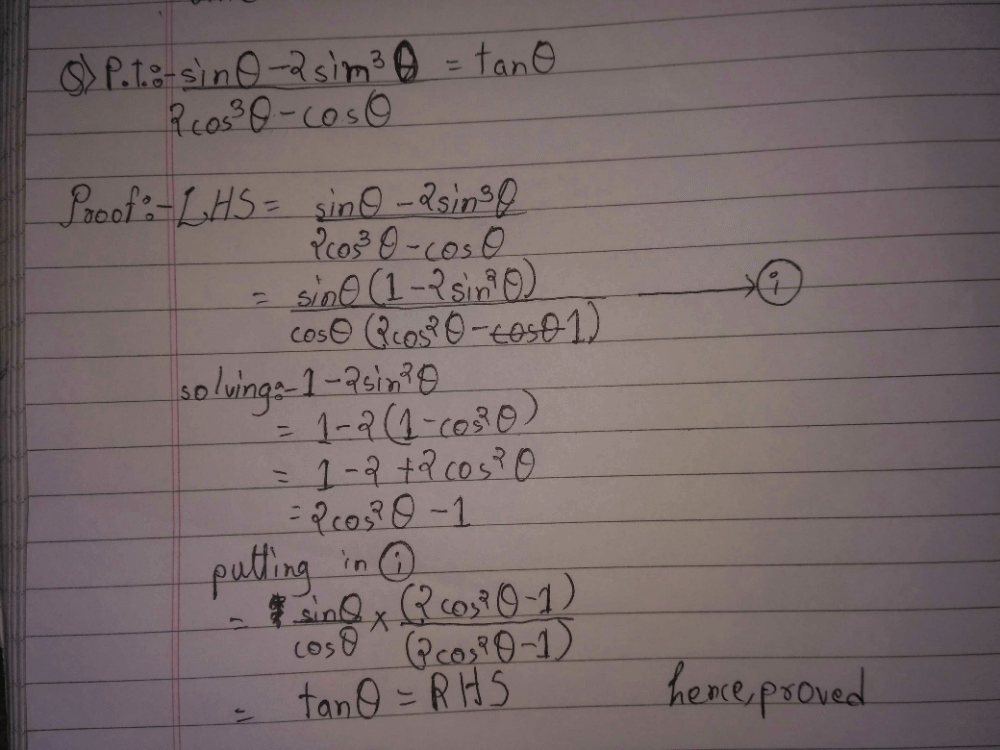 Q) P.T.:- sinθ - 2sim³θ = tanθ
2cos³θ - cosθ
Proof:- LHS = sinθ - 2sin³θ
2cos³θ - cosθ
= sinθ (1 - 2sin²θ) → (i)
cosθ (2cos²θ - cosθ 1)
solving:- 1 - 2sin²θ
= 1 - 2(1 - cos²θ)
= 1 - 2 + 2cos²θ
= 2cos²θ - 1
putting in (i)
= sinθ × (2cos²θ - 1)
cosθ (2cos²θ - 1)
= tanθ = RHS hence, proved